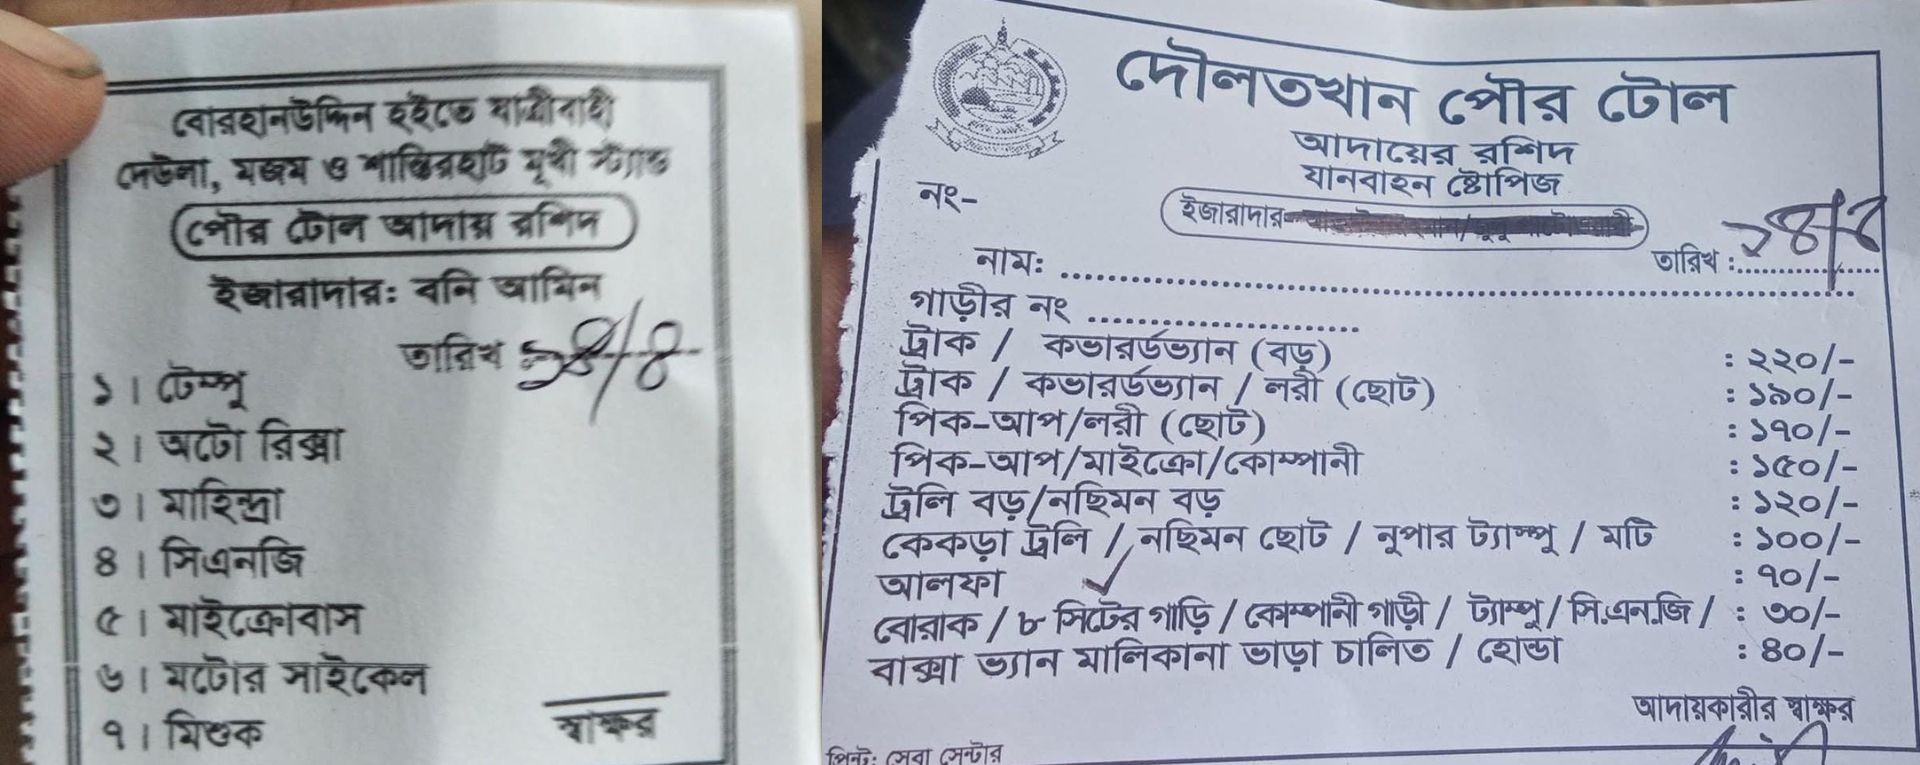 বোরহানউদ্দিন হইতে যাত্রীবাহী
দেউলা, মজম ও শান্তিরহাট মূখী স্ট্যান্ড
পৌর টোল আদায় রশিদ
ইজারাদার: বনি আমিন
তারিখ : ১৪/৪
১। টেম্পু
২। অটো রিক্সা
৩। মাহিন্দ্রা
৪। সিএনজি
৫। মাইক্রোবাস
৬। মটোর সাইকেল
৭। মিশুক
স্বাক্ষর
দৌলতখান পৌর টোল
আদায়ের রশিদ
যানবাহন ষ্টোপিজ
নং-
ইজারাদার-
তারিখ : ১৪/৪
নাম:
গাড়ীর নং
ট্রাক / কভারর্ডভ্যান (বড়) : ২২০/-
ট্রাক / কভারর্ডভ্যান / লরী (ছোট) : ১৯০/-
পিক-আপ/লরী (ছোট) : ১৭০/-
পিক-আপ/মাইক্রো/কোম্পানী : ১৫০/-
ট্রলি বড়/নছিমন বড় : ১২০/-
কেকড়া ট্রলি / নছিমন ছোট / নুপার ট্যাম্পু / মটি : ১০০/-
আলফা : ৭০/-
বোরাক / ৮ সিটের গাড়ি / কোম্পানী গাড়ী / ট্যাম্পু / সি.এন.জি / : ৩০/-
বাক্সা ভ্যান মালিকানা ভাড়া চালিত / হোন্ডা : ৪০/-
আদায়কারীর স্বাক্ষর
প্রিন্ট: সেবা সেন্টার